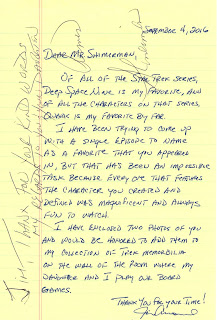 September 4, 2016
Dear Mr Shimerman,
Of all of the Star Trek series,
Deep Space Nine is my favorite, and
of all the characters on that series,
Quark is my favorite by far.
I have been trying to come up
with a single episode to name
as a favorite that you appeared
in, but that has been an impossible
task because every one that features
the character you created and
defined was magnificent and always
fun to watch.
I have enclosed two photos of you
and would be honored to add them to
my collection of Star Trek memorabilia
on the wall of the room where my
daughter and I play our board
games.
Thank you for your time!
Jim
Thank you for your kind words